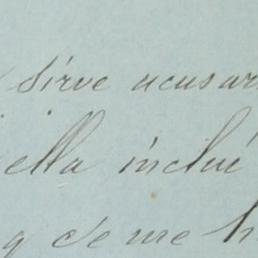 sirve acusar
ella inclui
q de me h